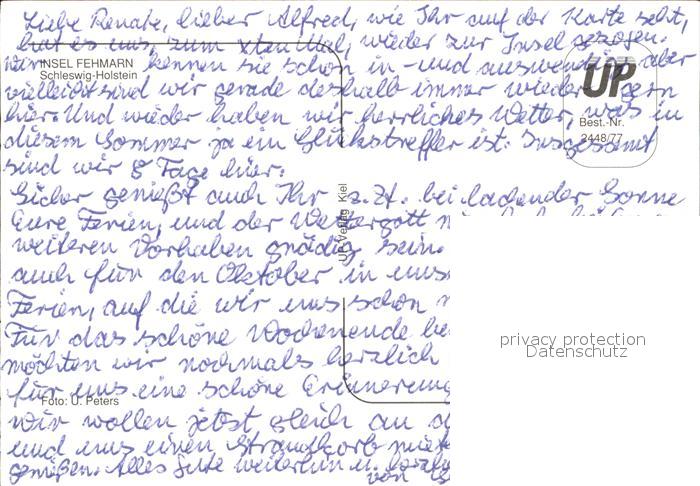 Liebe Renate, lieber Alfred, wie Ihr auf der Karte seht,
hat es uns, zum xten Mal, wieder zur Insel gezogen.
Wir kennen sie schon in- und auswendig, aber
INSEL FEHMARN
Schleswig-Holstein
UP
Best.-Nr.
2448/77
vielleicht sind wir gerade deshalb immer wieder gern
hier. Und wieder haben wir herrliches Wetter, was in
diesem Sommer ja ein Glückstreffer ist. Insgesamt
sind wir 8 Tage hier.
Sicher genießt auch Ihr z.Zt. bei lachender Sonne
Eure Ferien, und der Wettergott
weiteren Vorhaben gnädig sein.
UP-Verlag Kiel
auch für den Oktober in
Ferien, auf die wir uns schon
Für das schöne Wochenende
möchten wir nochmals herzlich
für uns eine schöne Erinnerung
Foto: U. Peters
Wir wollen jetzt gleich an
und uns einen Strandkorb
genießen. Alles Gute weiterhin u.
von
privacy protection
Datenschutz